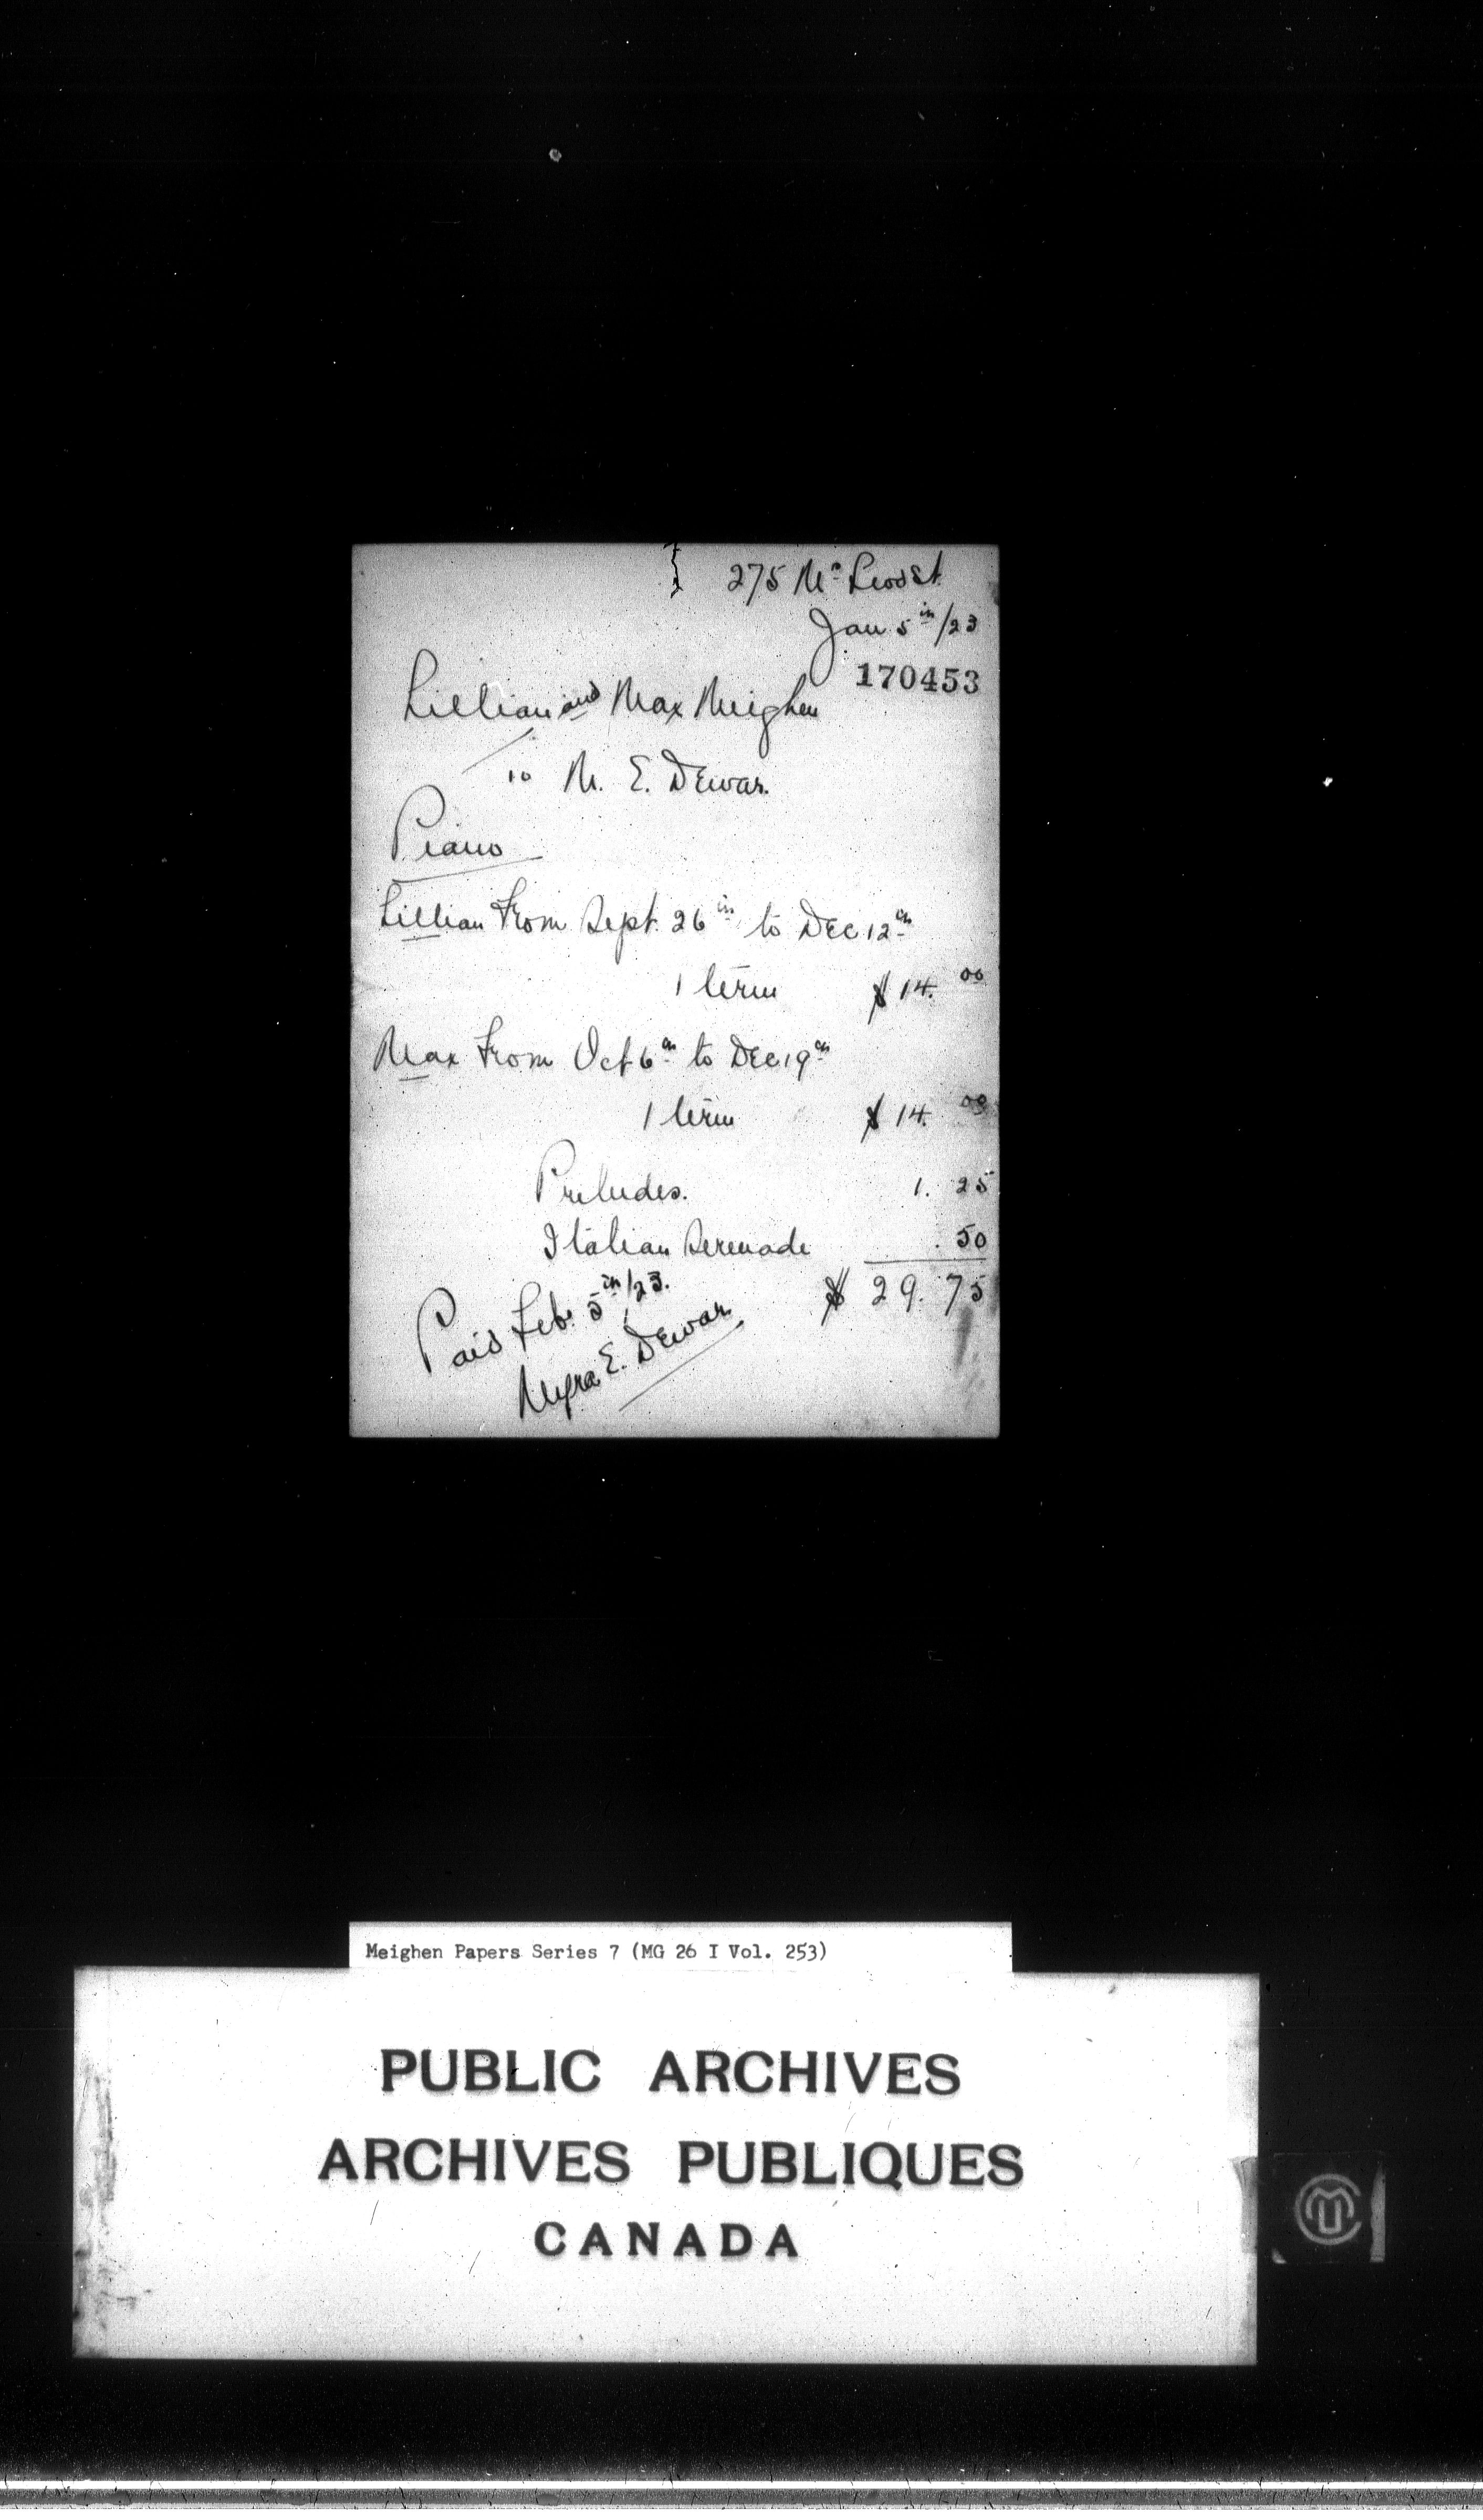 275 Mc Leod St.
Jan 5th/23
170453
Lillian and Max Meighen
To M. E. Dewar.
Piano
Lillian From Sept. 26th to Dec 12th
1 term $14.00
Max From Oct 6th to Dec 19th
1 term $14.00
Preludes. 1.25
Italian Serenade .50
$29.75
Paid Feb. 5th/23.
Myra E. Dewar
Meighen Papers Series 7 (MG 26 I Vol. 253)
PUBLIC ARCHIVES
ARCHIVES PUBLIQUES
CANADA